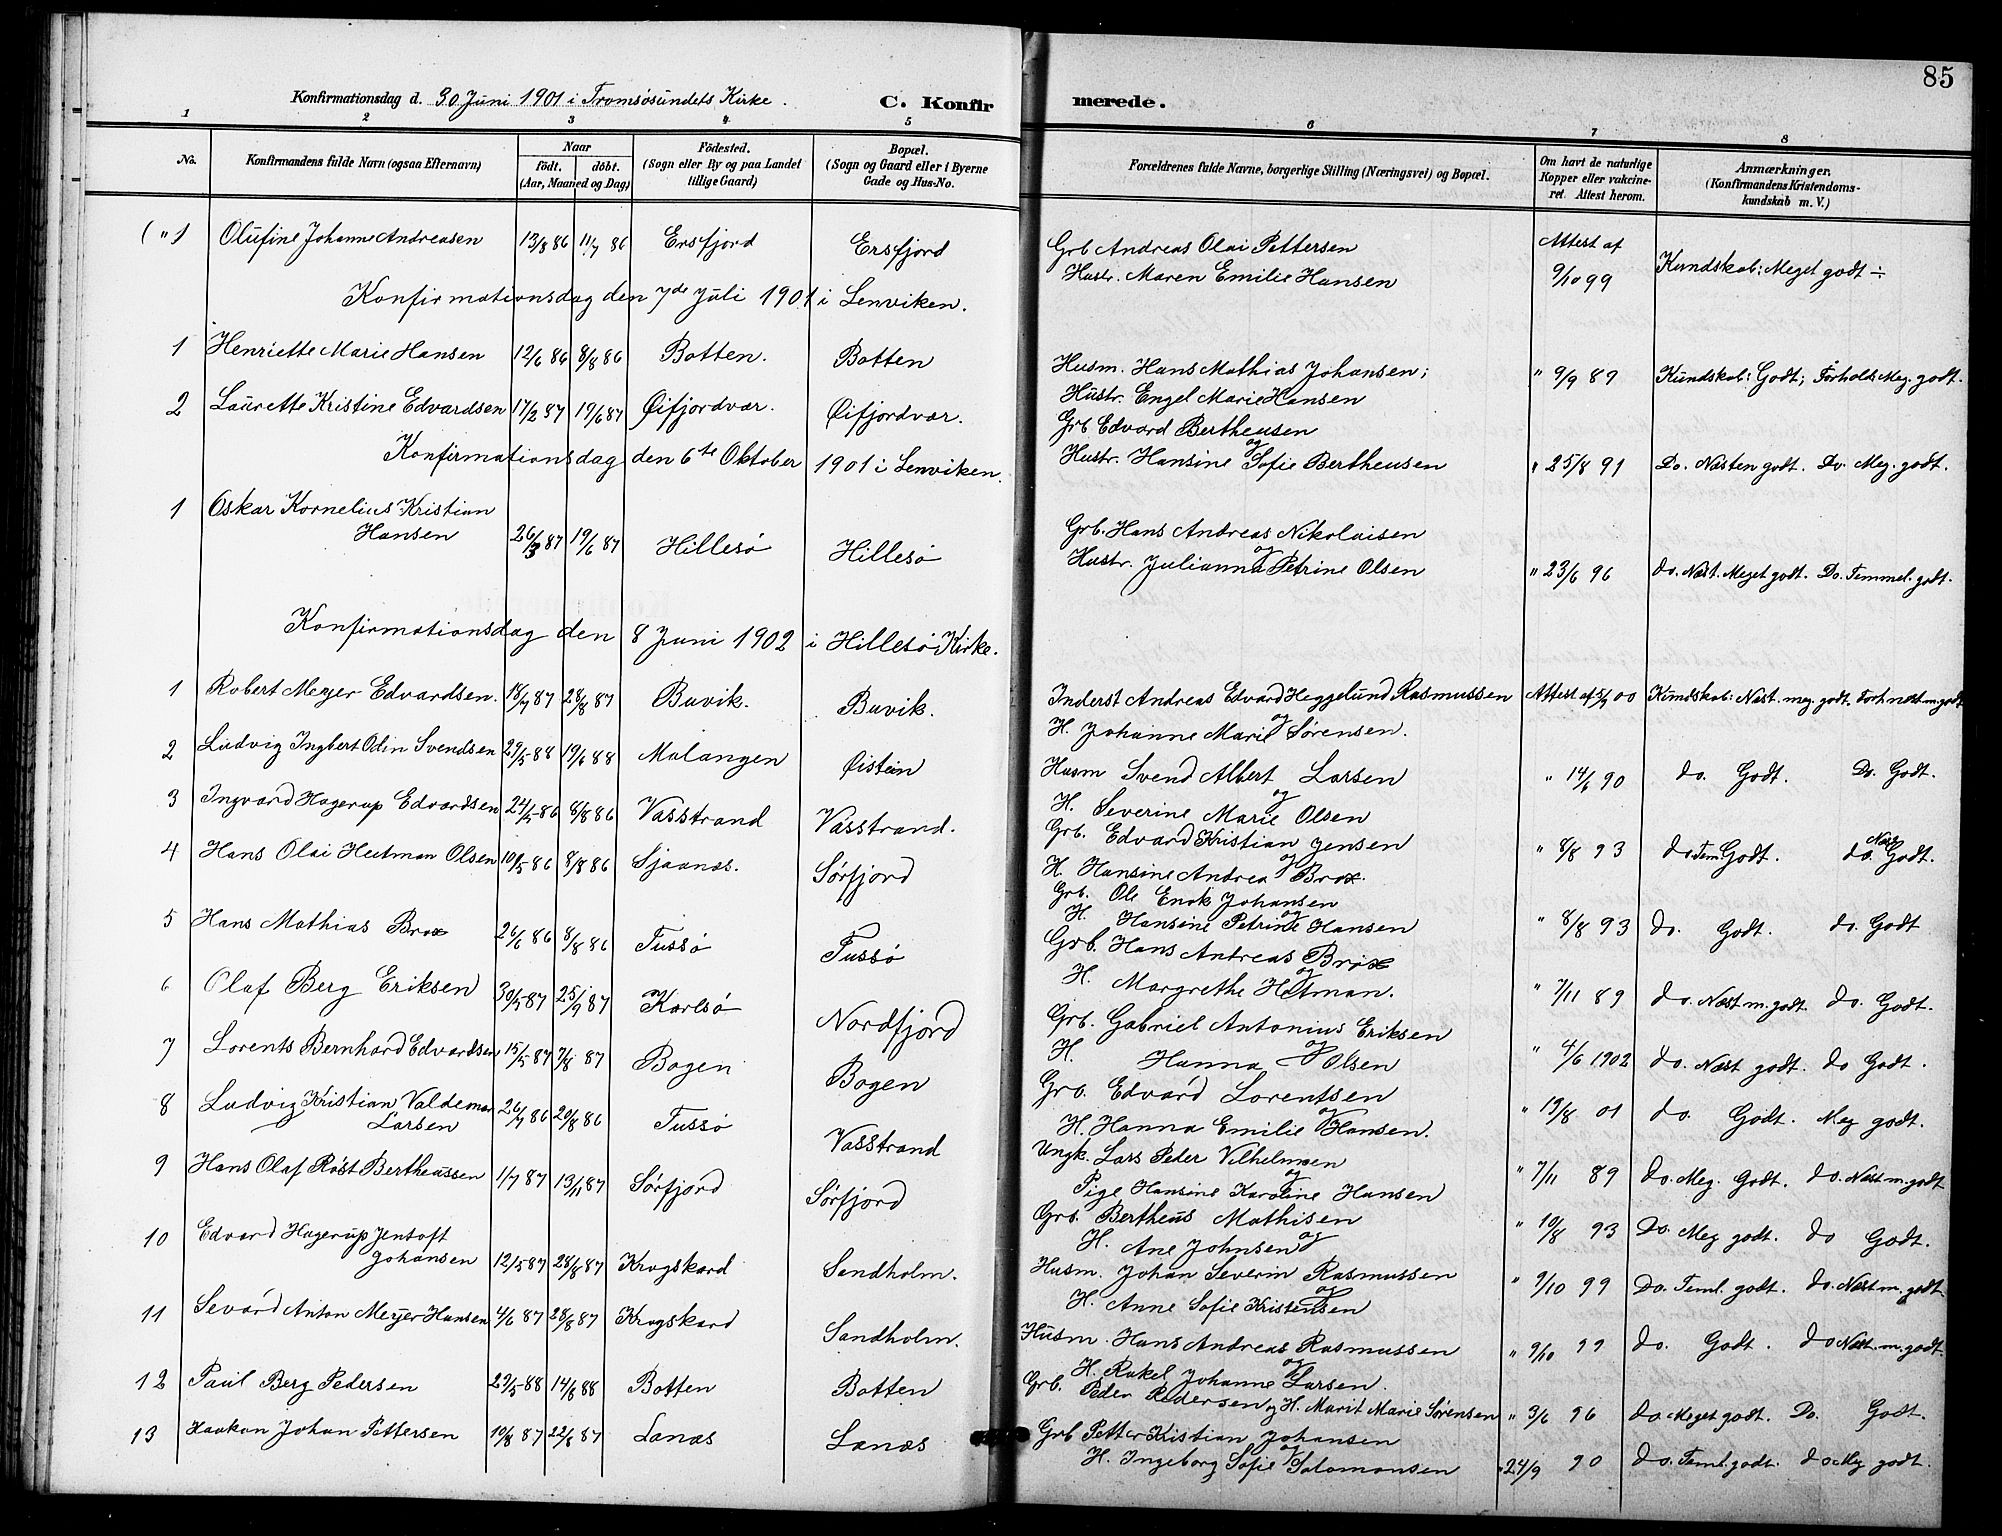 85
Konfirmationsdag d. 30 Juni 1901 i Tromsøsundets Kirke.
C. Konfirmerede.
1 2 3 4 5 6 7 8
No.
Konfirmandens fulde Navn (ogsaa Efternavn)
Naar
födt. döbt.
(Aar, Maaned og Dag)
Födested.
(Sogn eller By og paa Landet
tillige Gaard)
Bopæl.
(Sogn og Gaard eller i Byerne
Gade og Hus-No.
Forældrenes fulde Navne, borgerlige Stilling (Næringsvei) og Bopæl.
Om havt de naturlige
Kopper eller vakcine-
ret. Attest herom.
Anmærkninger.
(Konfirmandens Kristendoms-
kundskab m. V.)
(") Olufine Johanne Andreasen 13/8 86 11/7 86 Ersfjord Ersfjord
Grb Andreas Olai Pettersen Attest af
Hustr. Maren Emilie Hansen 9/10 99 Kundskab: Meget godt ÷
Konfirmationsdag den 7de Juli 1901 i Lenviken.
1 Henriette Marie Hansen 12/6 86 8/8 86 Botten. Botten
Husm. Hans Mathias Johansen; " 9/9 89 Kundskab: Godt; Forhold: Meg. godt.
Hustr. Engel Marie Hansen
2 Laurette Kristine Edvardsen 17/2 87 19/6 87 Øifjordvær. Øifjordvær.
Grb Edvard Bertheusen
og
Hustr. Hansine Sofie Bertheusen " 25/8 91 Do. Næsten godt. Do. Meg. godt.
Konfirmationsdag den 6te Oktober 1901 i Lenviken.
1 Oskar Kornelius Kristian
Hansen 26/3 87 19/6 87 Hillesø Hillesø
Grb. Hans Andreas Nikolaisen
og
Hustr. Julianna Petrine Olsen " 23/6 96 do. Næst. Meget godt. Do. Temmel. godt.
Konfirmationsdag den 8 Juni 1902 i Hillesö Kirke.
1 Robert Meyer Edvardsen. 18/7 87 28/8 87 Buvik. Buvik.
Inderst Andreas Edvard Heggelund Rasmussen Attest af 5/9 00 Kundskab: Næst. meg. godt. Forh næst m. godt
og
H. Johanne Marie Sørensen.
2 Ludvig Ingbert Odin Svendsen 29/5 88 19/6 88 Malangen Øistein
Husm Svend Albert Larsen " 14/6 90 do. Godt. Do. Godt.
og
H. Severine Marie Olsen
3 Ingvard Hagerup Edvardsen 24/5 86 8/8 86 Vasstrand Vasstrand.
Grb. Edvard Kristian Jensen " 8/8 93 do Tem Godt. do. Næst Godt.
og
H. Hansine Andrea Brox.
4 Hans Olai Heitman Olsen 10/5 86 8/8 86 Sjaanæs. Sørfjord
Grb. Ole Enok Johansen
og
H. Hansine Petrine Hansen " 8/8 93 do. Godt. do. Godt
5 Hans Mathias Brox 26/6 86 8/8 86 Tussø Tussø
Grb. Hans Andreas Brox
og
H. Margrethe Hetman. " 7/11 89 do. Næst m. godt. do. Godt.
6 Olaf Berg Eriksen 30/5 87 25/9 87 Karlsø Nordfjord
Grb. Gabriel Antonius Eriksen
og
H. Hanna Olsen " 4/6 1902 do. Næst godt. do Godt.
7 Lorents Bernhard Edvardsen 15/5 87 7/8 87 Bogen Bogen
Grb. Edvard Lorentsen
og
H. Hanna Emilie Hansen. " 19/8 01 do. Godt. Meg godt.
8 Ludvig Kristian Valdemar
Larsen 26/7 86 20/8 86 Tussø Vasstrand
Ungk. Lars Peder Vilhelmsen
og
Pige Hansine Karoline Hansen " 7/11 89 do. Meg. Godt. do. Næst m. godt
9 Hans Olaf Røst Bertheussen 1/7 87 13/11 87 Sørfjord Sørfjord
Grb. Bertheus Mathisen " 10/8 93 Do. Meg godt. do Godt.
H. Ane Johnsen og
10 Edvard Hagerup Jentoft
Johansen 12/5 87 28/8 87 Krogskard Sandholm.
Husm. Johan Severin Rasmussen " 9/10 99 Do. Teml. godt. do. Næst m. godt.
og
H. Anne Sofie Kristensen
11 Sevard Anton Meyer Hansen 4/6 87 28/8 87 Krogskard Sandholm.
Husm. Hans Andreas Rasmussen " 9/10 99 do. Godt. do Næst m. godt.
og
H. Rakel Johanne Larsen.
12 Paul Berg Pedersen 29/5 88 14/8 88 Botten Botten
Grb. Peder Pedersen og H. Marit Marie Sørensen " 3/6 96 do. Meget godt. Do. Godt.
13 Haakon Johan Pettersen 10/8 87 22/6 87 Lanæs Lanæs
Grb Petter Kristian Johansen
og
H. Ingeborg Sofie Salomonsen " 24/9 90 do. Teml. godt. do. Meg godt.